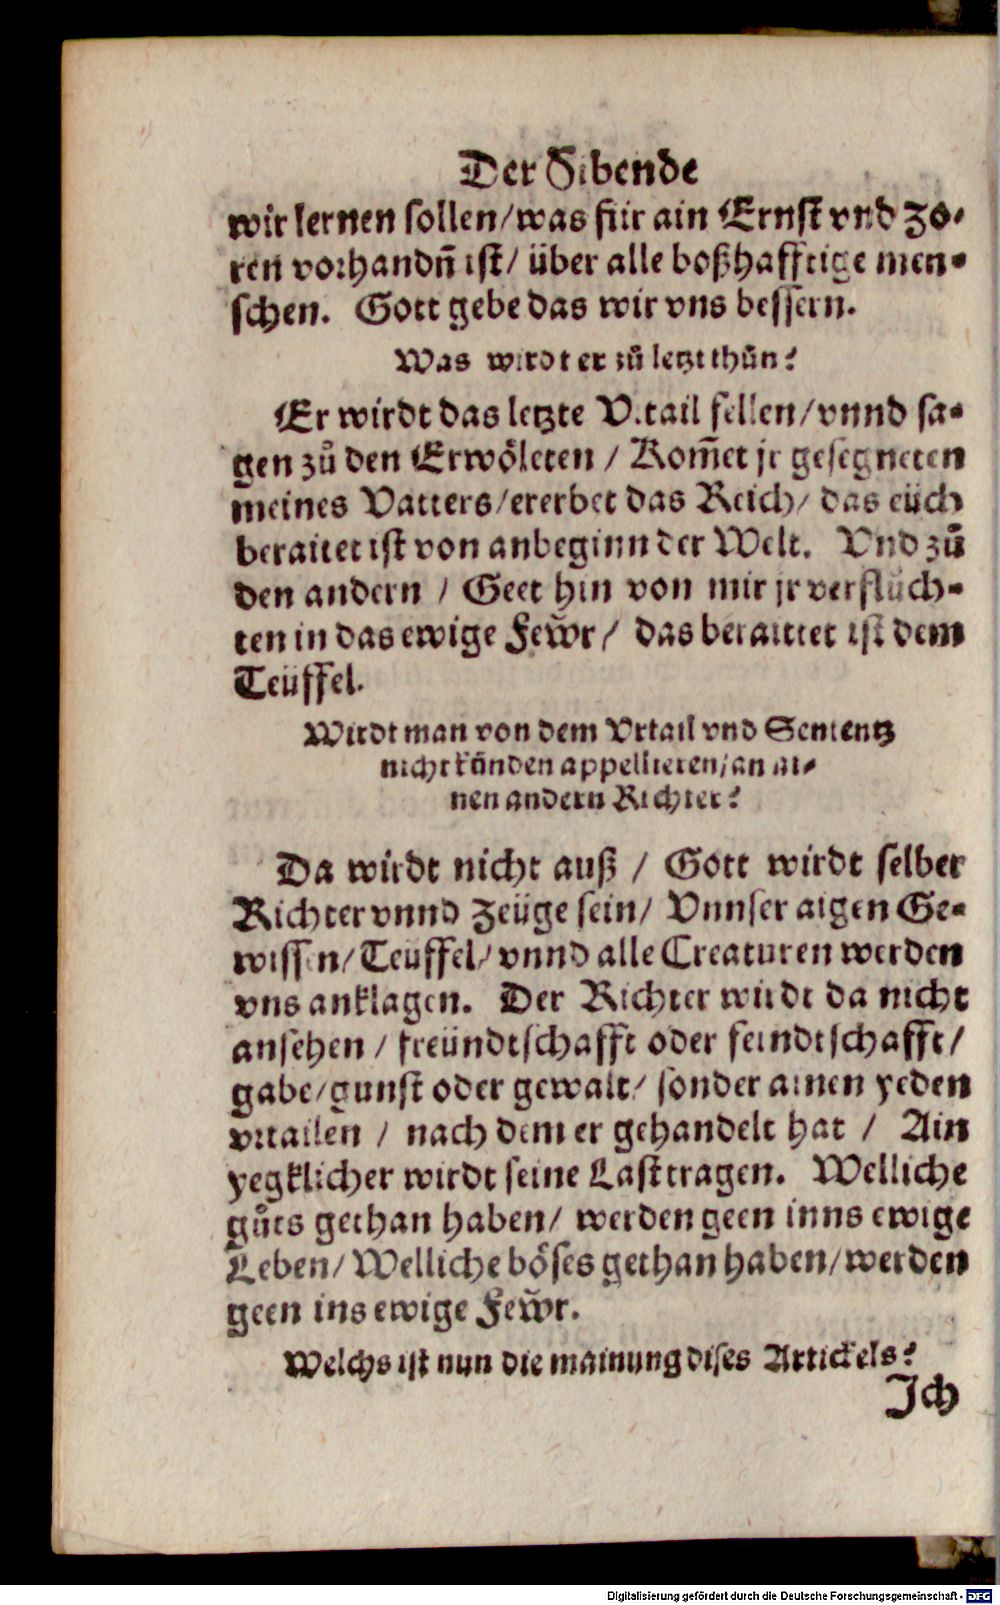 Der Sibende
wir lernen sollen/was für ain Ernst vnd zo-
ren vorhandn̄ ist/ über alle boßhafftige men-
schen. Gott gebe das wir vns bessern.
Was wirdt er zů letzt thůn?
Er wirdt das letzte Vrtail fellen/vnnd sa-
gen zů den Erwöleten / Kom̄et jr gesegneten
meines Vatters/ererbet das Reich/ das eüch
beraitet ist von anbeginn der Welt. Vnd zů
den andern / Geet hin von mir jr verflůch-
ten in das ewige Fewr/ das beraittet ist dem
Teüffel.
Wirdt man von dem Vrtail vnd Sententz
nicht künden appellieren/an ai-
nen andern Richter?
Da wirdt nicht auß / Gott wirdt selber
Richter vnnd Zeüge sein/ Vnnser aigen Ge-
wissen/Teüffel/vnnd alle Creaturen werden
vns anklagen. Der Richter wirdt da nicht
ansehen / freündtschafft oder feindtschafft/
gabe/gunst oder gewalt/ sonder ainen yeden
vrtailen / nach dem er gehandelt hat / Ain
yegklicher wirdt seine Last tragen. Welliche
gůts gethan haben/ werden geen inns ewige
Leben/Welliche böses gethan haben/werden
geen ins ewige Fewr.
Welchs ist nun die mainung dises Artickels?
Ich
Digitalisierung gefördert durch die Deutsche Forschungsgemeinschaft - DFG